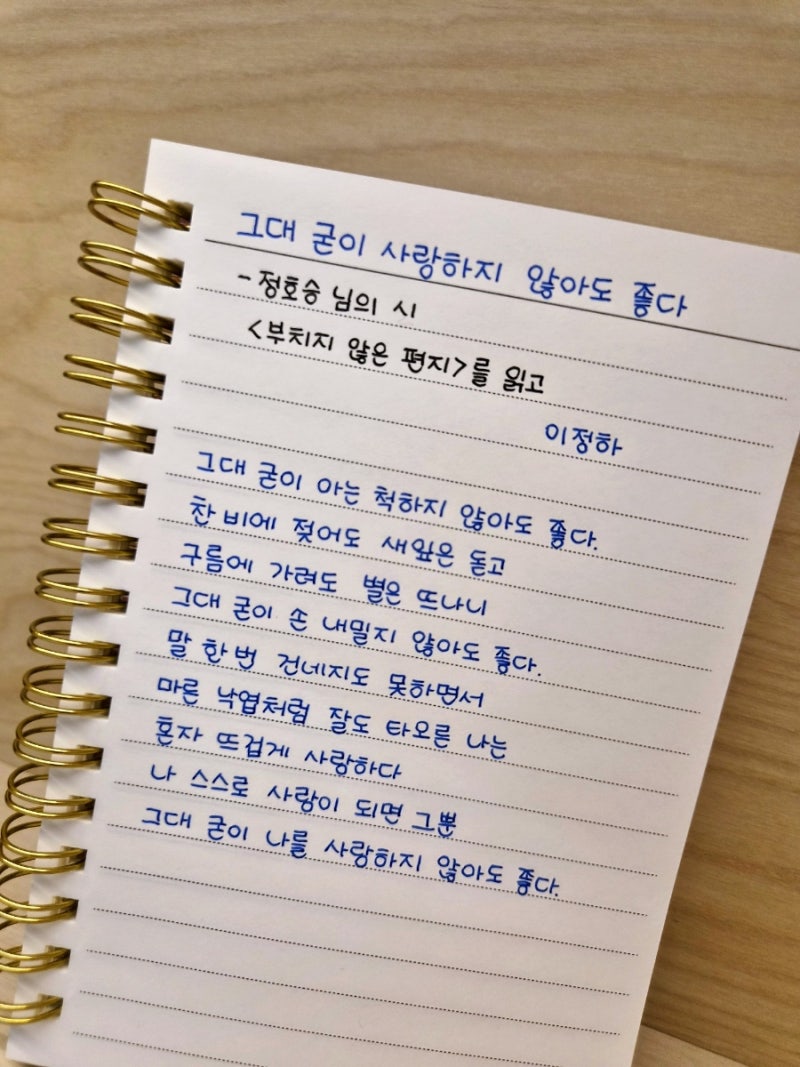 그대 굳이 사랑하지 않아도 좋다
- 정호승 님의 시
<부치지 않은 편지>를 읽고
이정하
그대 굳이 아는 척하지 않아도 좋다.
찬 비에 젖어도 새잎은 돋고
구름에 가려도 별은 뜨나니
그대 굳이 손 내밀지 않아도 좋다.
말 한 번 건네지도 못하면서
마른 낙엽처럼 잘도 타오른 나는
혼자 뜨겁게 사랑하다
나 스스로 사랑이 되면 그뿐
그대 굳이 나를 사랑하지 않아도 좋다.